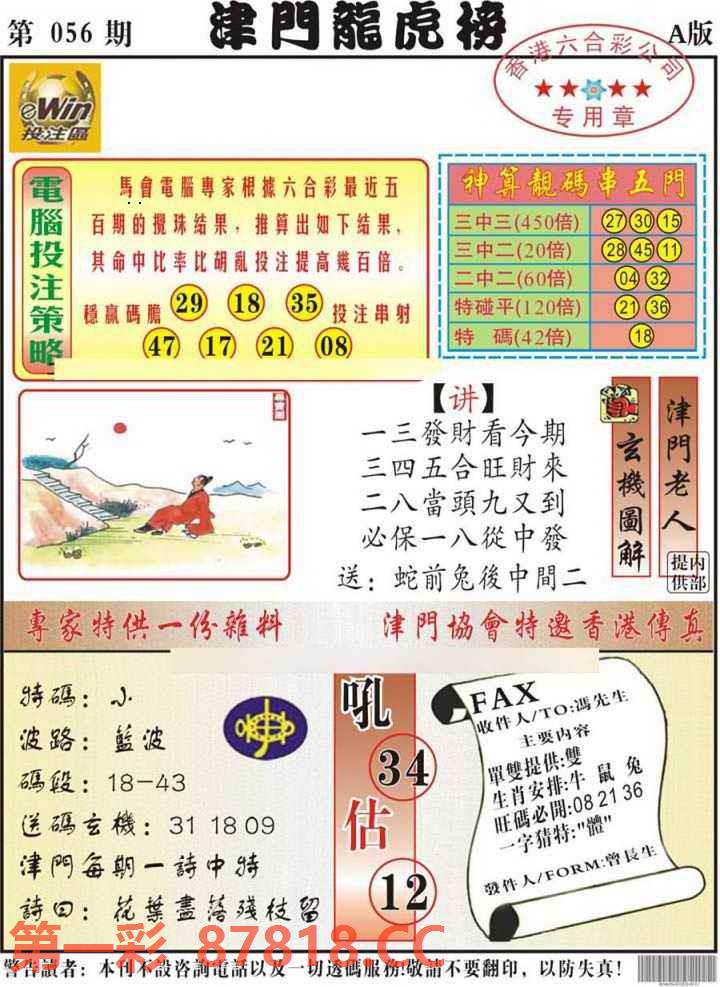 第 056 期
津門龍虎榜
A版
香港六合彩公司
专用章
eWin
投注區
電腦投注策略
馬會電腦專家根據六合彩最近五
百期的攪珠結果，推算出如下結果，
其命中比率比胡亂投注提高幾百倍。
穩贏碼膽 29 18 35 投注串射
47 17 21 08
神算靚碼串五門
三中三(450倍) 27 30 15
三中二(20倍) 28 45 11
二中二(60倍) 04 32
特碰平(120倍) 21 36
特 碼(42倍) 18
【讲】
一三發財看今期
三四五合旺財來
二八當頭九又到
必保一八從中發
送：蛇前兔後中間二
玄機圖解
津門老人
内部提供
專家特供一份雜料
津門協會特邀香港傳真
特碼：小
波路：藍波
碼段：18-43
送碼玄機：31 18 09
津門每期一詩中特
詩曰：花葉盡落殘枝留
吼
34
估
12
FAX
收件人/TO:馮先生
主要内容
單雙提供:雙
生肖安排:牛 鼠 兔
旺碼必開:08 21 36
一字猜特:"體"
發件人/FORM:曾長生
第一彩 87818.CC
警告讀者：本刊不設咨詢電話以及一切透碼服務!敬請不要翻印，以防失真!